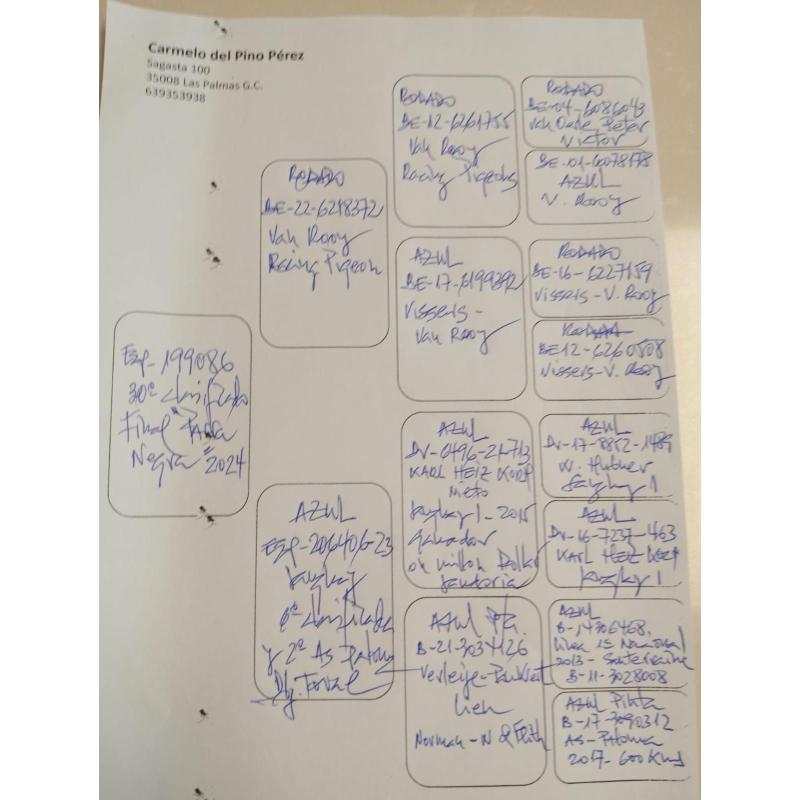 Carmelo del Pino Pérez
Sagasta 100
35008 Las Palmas G.C.
639353938
Esp-199086
30º clasificado
Final
Negra 2024
RODADO
BE-22-6218372
Van Rooy
Racing Pigeon
AZUL
Esp-206406-23
6º clasificada
y 2º As Paloma
RODADO
BE-12-6261755
Van Rooy
Racing Pigeons
AZUL
BE-17-6199392
Vissers-
Van Rooy
AZUL
DV-0496-21-713
KARL HEIZ
Nieto
1-2015
Ganador
un millon Dollar
AZUL Pta.
B-21-3034126
Verleije-
Norman-N
RODADO
BE-04-6086043
Peter
Victor
BE-01-6078178
AZUL
V. Rooy
RODADO
BE-16-6227159
Vissers-V. Rooy
BE12-6260508
Vissers-V. Rooy
AZUL
DV-17-8852-1489
W. Hutner
1
AZUL
DV-16-7237-463
KARL HEIZ
1
AZUL
B-14306468.
Linea 1º Nacional
2013-
B-11-3028008
AZUL Pinta
B-17-3090312
AS-Paloma
2017-600 Kms